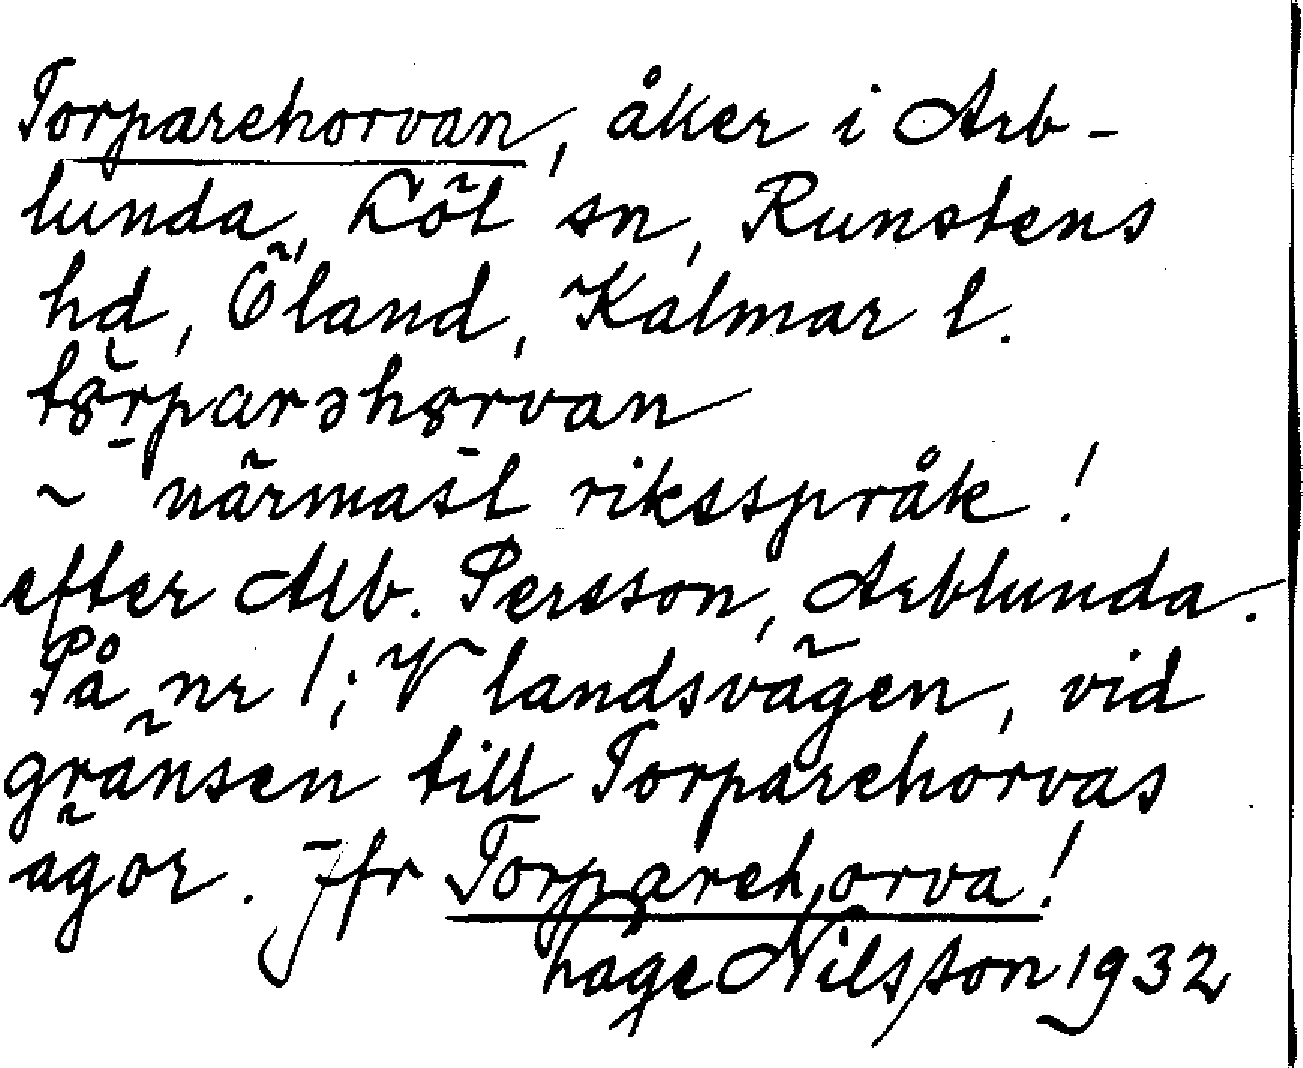 Torparehorvan, åker i Arb-
lunda, Löt sn, Runstens
hd, Öland, Kalmar l.
~ närmast riksspråk!
efter Alb. Persson, Arblunda.
På nr 1; V landsvägen, vid
gränsen till Torparehorvas
ägor. Jfr Torparehorva!
Hage Nilsson 1932